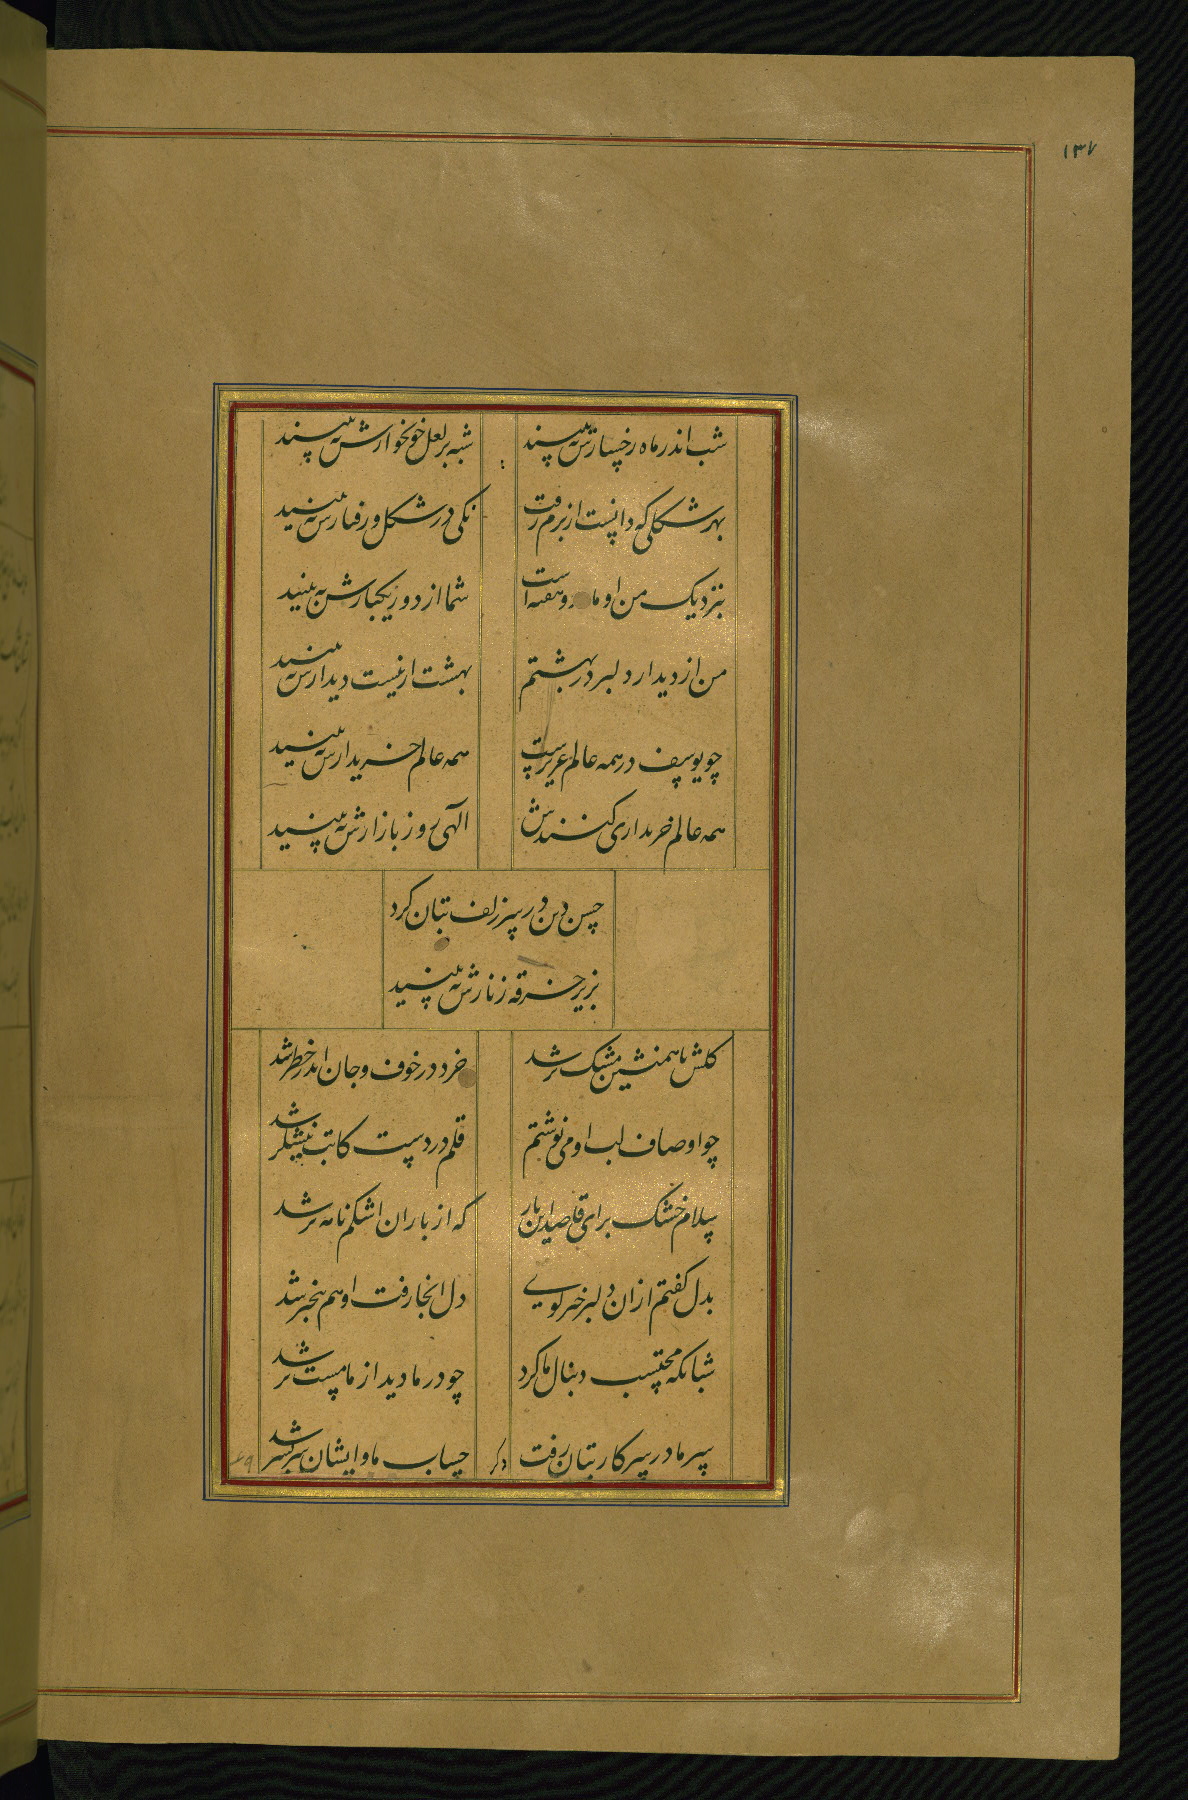 ۱۳۷
شب اندر ماه رخسارش به بینید
شبه بر لعل خونخوارش به بینید
بهر شکلی که دانست از برم رفت
نکی در شکل و رفتارش به بینید
بنزدیک من او ماه دو هفته است
شما از دور یکبارش به بینید
من از دیدار دلبر در بهشتم
بهشت ار نیست دیدارش به بینید
چو یوسف در همه عالم عزیزست
همه عالم خریدارش به بینید
همه عالم خریداری کنندش
الهی روز بازارش به بینید
حسن دین در سر زلف بتان کرد
بزیر خرقه زنارش به بینید
کلش با همنشین مشک تر شد
خرد در خوف و جان اندر خطر شد
چو اوصاف لب او می نوشتم
قلم در دست کاتب نیشکر شد
سلام خشک برای قاصد این بار
که از باران اشکم نامه تر شد
بدل کفتم ازان دلبر خبر کوی
دل انجا رفت او هم بیخبر شد
شبانکه محتسب دنبال ما کرد
چو در ما دید از ما مست تر شد
سر ما در سر کار بتان رفت
حساب ما و ایشان سر بسر شد
دکر